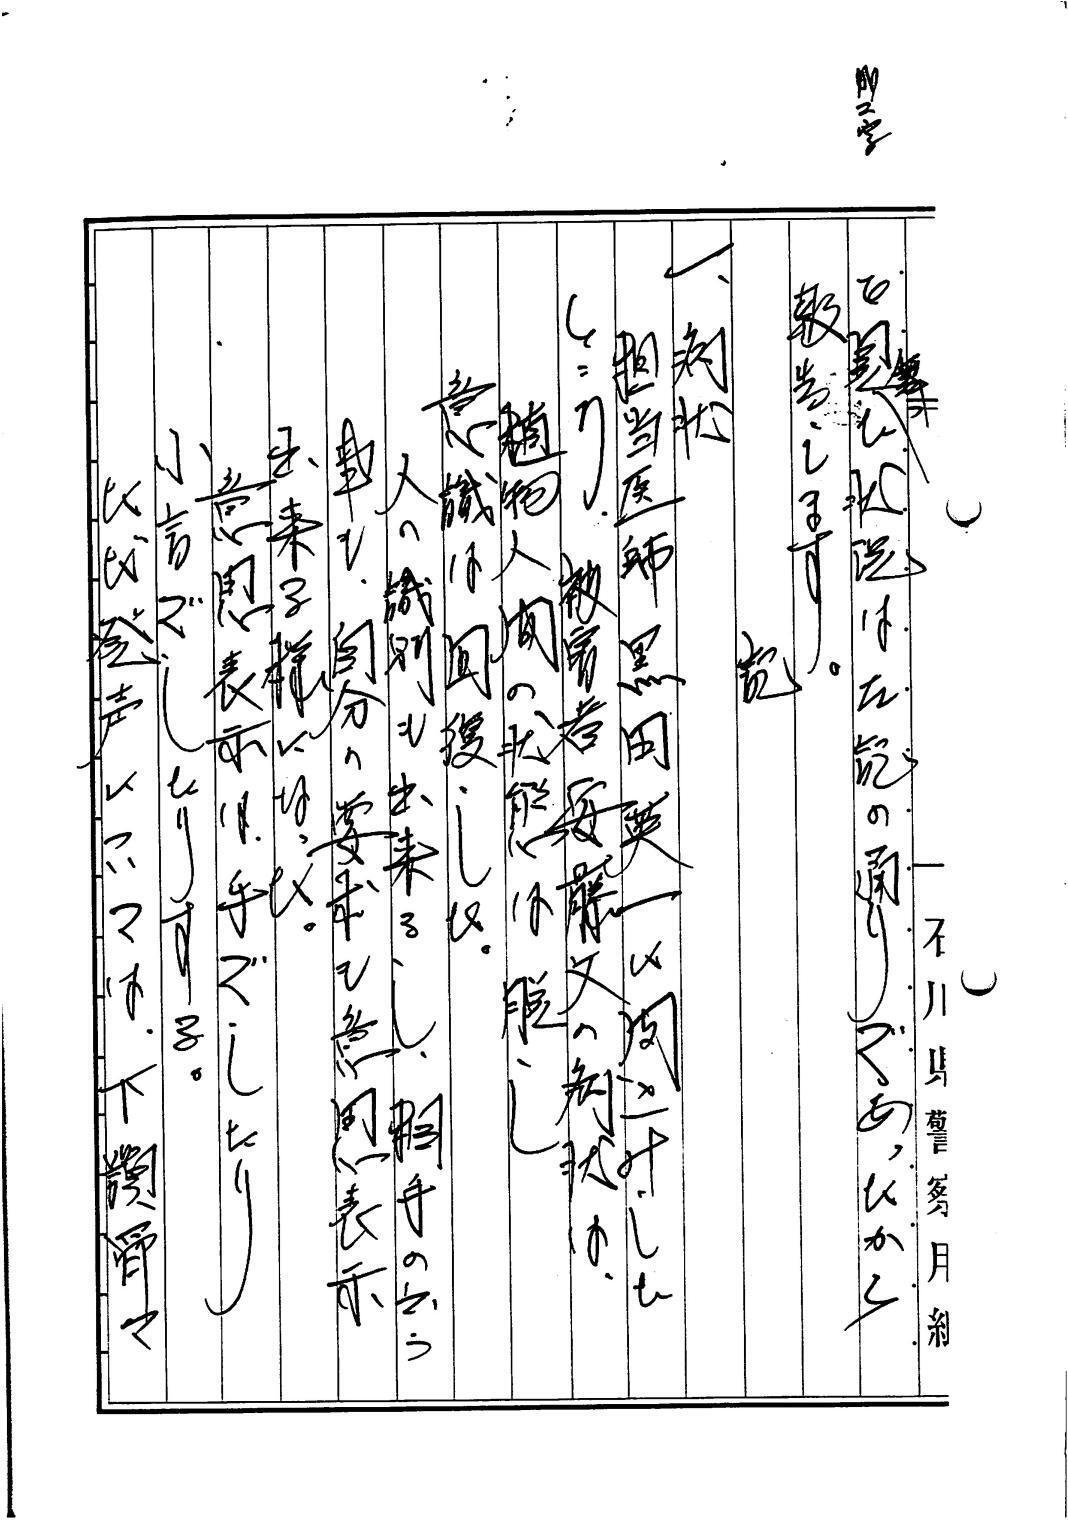 削二字
を聞いた状況は左記の通りであったから
報告します。
記
一、病状
担当医師黒田英一に聞き込みした
ところ、被害者安藤文の病状は、
植物人間の状態は脱し
意識は回復した。
人の識別も出来るし、相手の云う
事も、自分の要求も意思表示
出来る様になった。
意思表示は、手でしたり
小言でしたりする。
ただ発声については、下顎骨々
石川県警察用紙